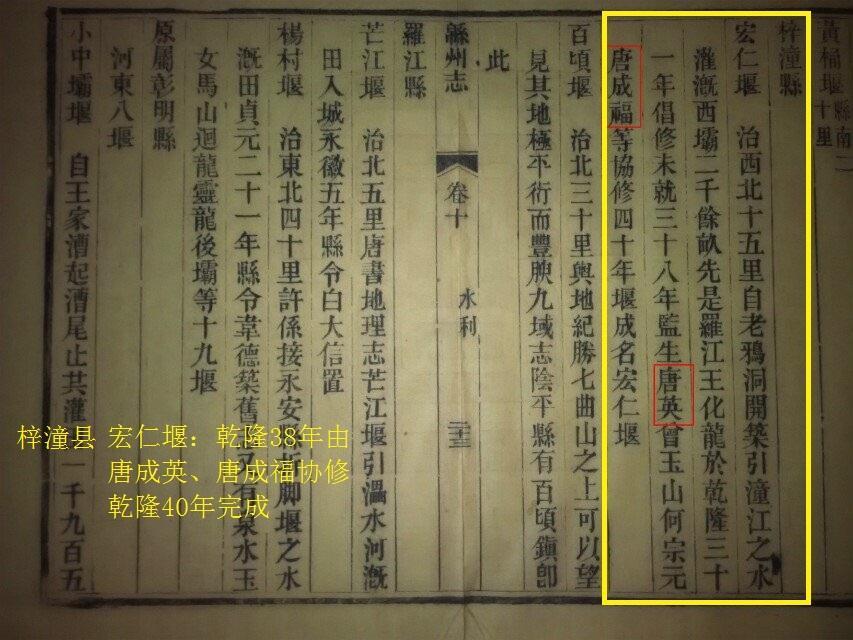 黃桶堰縣南二十里
梓潼縣
宏仁堰　治西北十五里自老鴉洞開築引潼江之水
灌漑西壩二千餘畝先是羅江王化龍於乾隆三十
一年倡修未就三十八年監生唐英曾玉山何宗元
唐成福等協修四十年堰成名宏仁堰
百頃堰　治北三十里輿地紀勝七曲山之上可以望
見其地極平衍而豐腴九域志陰平縣有百頃鎮卽
此
緜州志　卷十　水利　二十三
羅江縣
芒江堰　治北五里唐書地理志芒江堰引㵽水河漑
田入城永徽五年縣令白大信置
楊村堰　治東北四十里許係接永安縣折脚堰之水
漑田貞元二十一年縣令韋德築舊又有泉水玉
女馬山迴龍靈龍後壩等十九堰
原屬彰明縣
河東八堰
小中壩堰　自王家漕起漕尾止共灌一千九百五
梓潼县 宏仁堰：乾隆38年由
唐成英、唐成福协修
乾隆40年完成